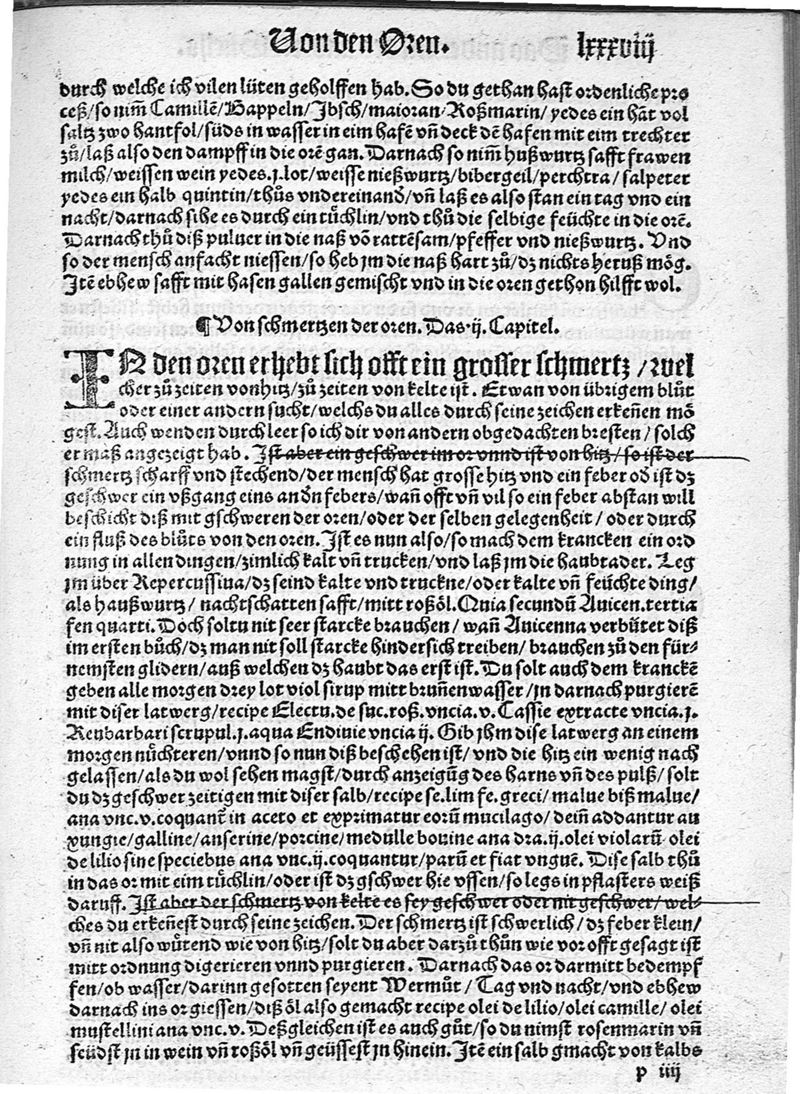 Von den Oren. lxxxviij
durch welche ich vilen lüten geholffen hab. So du gethan hast ordenliche pro
ceß/so nim̃ Camillẽ/Bappeln/Jbsch/maioran/Roßmarin/yedes ein hãt vol
saltz zwo hantfol/süds in wasser in eim hafẽ vñ deck dẽ hafen mit eim trechter
zů/laß also den dampff in die orẽ gan. Darnach so nim̃ hußwurtz safft frawen
milch/weissen wein yedes.j.lot/weisse nießwurtz/bibergeil/perchtra/salpeter
yedes ein halb quintin/thůs vndereinand̾/vñ laß es also stan ein tag vnd ein
nacht/darnach sihe es durch ein tüchlin/vnd thů die selbige feüchte in die orẽ.
Darnach thů diß puluer in die naß võ rattẽsam/pfeffer vnd nießwurtz. Vnd
so der mensch anfacht niessen/so heb jm die naß hart zů/dz nichts heruß mög.
Jtẽ ebhew safft mit hasen gallen gemischt vnd in die oren gethon hilfft wol.
¶ Von schmertzen der oren. Das.ij. Capitel.
IN den oren erhebt sich offt ein grosser schmertz/wel
cher zů zeiten von hitz/zů zeiten von kelte ist. Etwan von übrigem blůt
oder einer andern sucht/welchs du alles durch seine zeichen erkeñen mö
gest. Auch wenden durch leer so ich dir von andern obgedachten bresten/solch
er maß angezeigt hab. Jst aber ein geschwer im or vnnd ist von hitz/so ist der
schmertz scharff vnd stechend/der mensch hat grosse hitz vnd ein feber od̾ ist dz
geschwer ein vßgang eins and̾n febers/wañ offt vñ vil so ein feber abstan will
beschicht diß mit gschweren der oren/oder der selben gelegenheit/oder durch
ein fluß des blůts von den oren. Jst es nun also/so mach dem krancken ein ord
nung in allen dingen/zimlich kalt vñ trucken/vnd laß jm die haubtader. Leg
jm über Repercussiua/dz seind kalte vnd truckne/oder kalte vñ feüchte ding/
als haußwurtz/nachtschatten safft/mitt roßöl. Quia secundũ Auicen.tertia
fen quarti. Doch soltu nit seer starcke brauchen/wañ Auicenna verbütet diß
im ersten bůch/dz man nit soll starcke hindersich treiben/brauchen zů den für-
nemsten glidern/auß welchen dz haubt das erst ist. Du solt auch dem kranckẽ
geben alle morgen drey lot viol sirup mitt bruñenwasser/jn darnach purgierẽ
mit diser latwerg/recipe Electu.de suc.roß.vncia.v. Cassie extracte vncia.j.
Reubarbari scrupul.j.aqua Endiuie vncia ij. Gib jhm dise latwerg an einem
morgen nůchteren/vnnd so nun diß beschehen ist/vnd die hitz ein wenig nach
gelassen/als du wol sehen magst/durch anzeigũg des harns vñ des pulß/solt
du dz geschwer zeitigen mit diser salb/recipe se.lim fe.greci/malue biß malue/
ana vnc.v.coquant̃ in aceto et exprimatur eorũ mucilago/deiñ addantur au
xungie/galline/anserine/porcine/medulle bouine ana dra.ij.olei violarũ olei
de lilio sine speciebus ana vnc.ij.coquantur/parũ et fiat vnguẽ. Dise salb thů
in das or mit eim tüchlin/oder ist dz gschwer hie vssen/so legs in pflasters weiß
daruff. Jst aber der schmertz von kelte es sey geschwer oder nit geschwer/wel-
ches du erkeñest durch seine zeichen. Der schmertz ist schwerlich/dz feber klein/
vñ nit also wütend wie von hitz/solt du aber darzů thůn wie vor offt gesagt ist
mitt ordnung digerieren vnnd purgieren. Darnach das or darmitt bedempf
fen/ob wasser/darinn gesotten seyent Wermůt/Tag vnd nacht/vnd ebhew
darnach ins or giessen/diß öl also gemacht recipe olei de lilio/olei camille/olei
mustellini ana vnc.v. Deßgleichen ist es auch gůt/so du nimst rosenmarin vñ
seüdst jn in wein vñ roßöl vñ geüssest jn hinein. Jtẽ ein salb gmacht von kalbs
p iiij